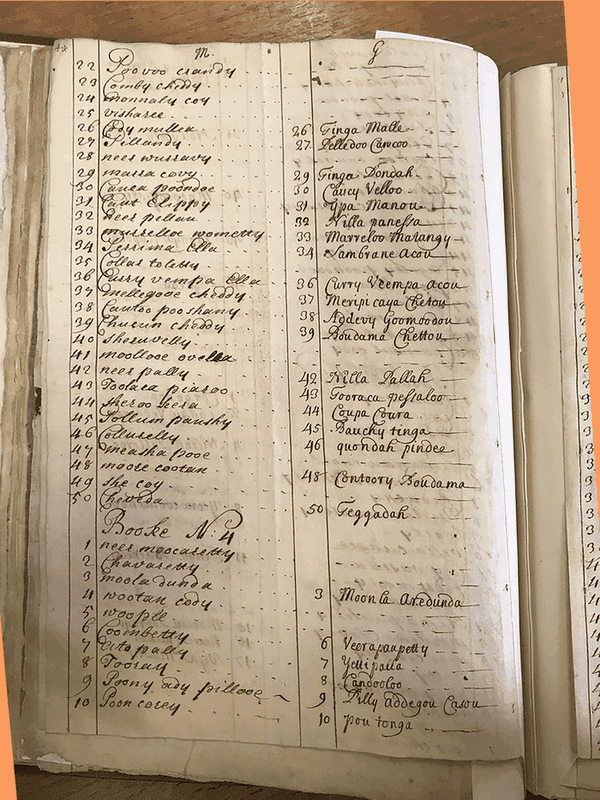 M. G
22 Poovoo crandy
23 Comby cheddy
24 monnaly coy
25 visharee
26 Cody mullea 26 Tinga Malle
27 Pillandy 27 Pelledoo Caucoo
28 neer wurravy
29 marra covy 29 Tinga Dondah
30 Caura poondoe 30 Caucy Velloo
31 Caut Elippy 31 Ypa Manou
32 neer pellau 32 Nilla panessa
33 murrelloe wometty 33 Marveloo Matangy
34 Serrima Ella 34 Sambrane Acou
35 Collar toletty
36 Curry vempa Ella 36 Curry Veempa Acou
37 mellegooe cheddy 37 Meripicaya Chetou
38 Cautoo pooshany 38 Addevy Goomoodou
39 Chucun cheddy 39 Boudama Chettou
40 sheruvelly
41 moollooe ovella
42 neer pally 42 Nilla Pallah
43 Toolaca piaroo 43 Tooraca pessaloo
44 sheroo keera 44 Coupa Coura
45 Pollum paushy 45 Bauchy tinga
46 Colluselly 46 quondah pindee
47 measha pooe
48 moore cootan 48 Contoory Boudama
49 she coy
50 Cheveda 50 Teggadah
Booke No. 4
1 neer moocaretty
2 Chavaretty
3 moola dunda 3 Moonla Aredunda
4 wootan cody
5 woopll
6 Coombetty 6 Veerapaupetty
7 Eito pally 7 Yettipaua
8 Tooray 8 Candooloo
9 Poony ady pillooe 9 Pilly addegou Casou
10 Poon corey 10 pou tonga